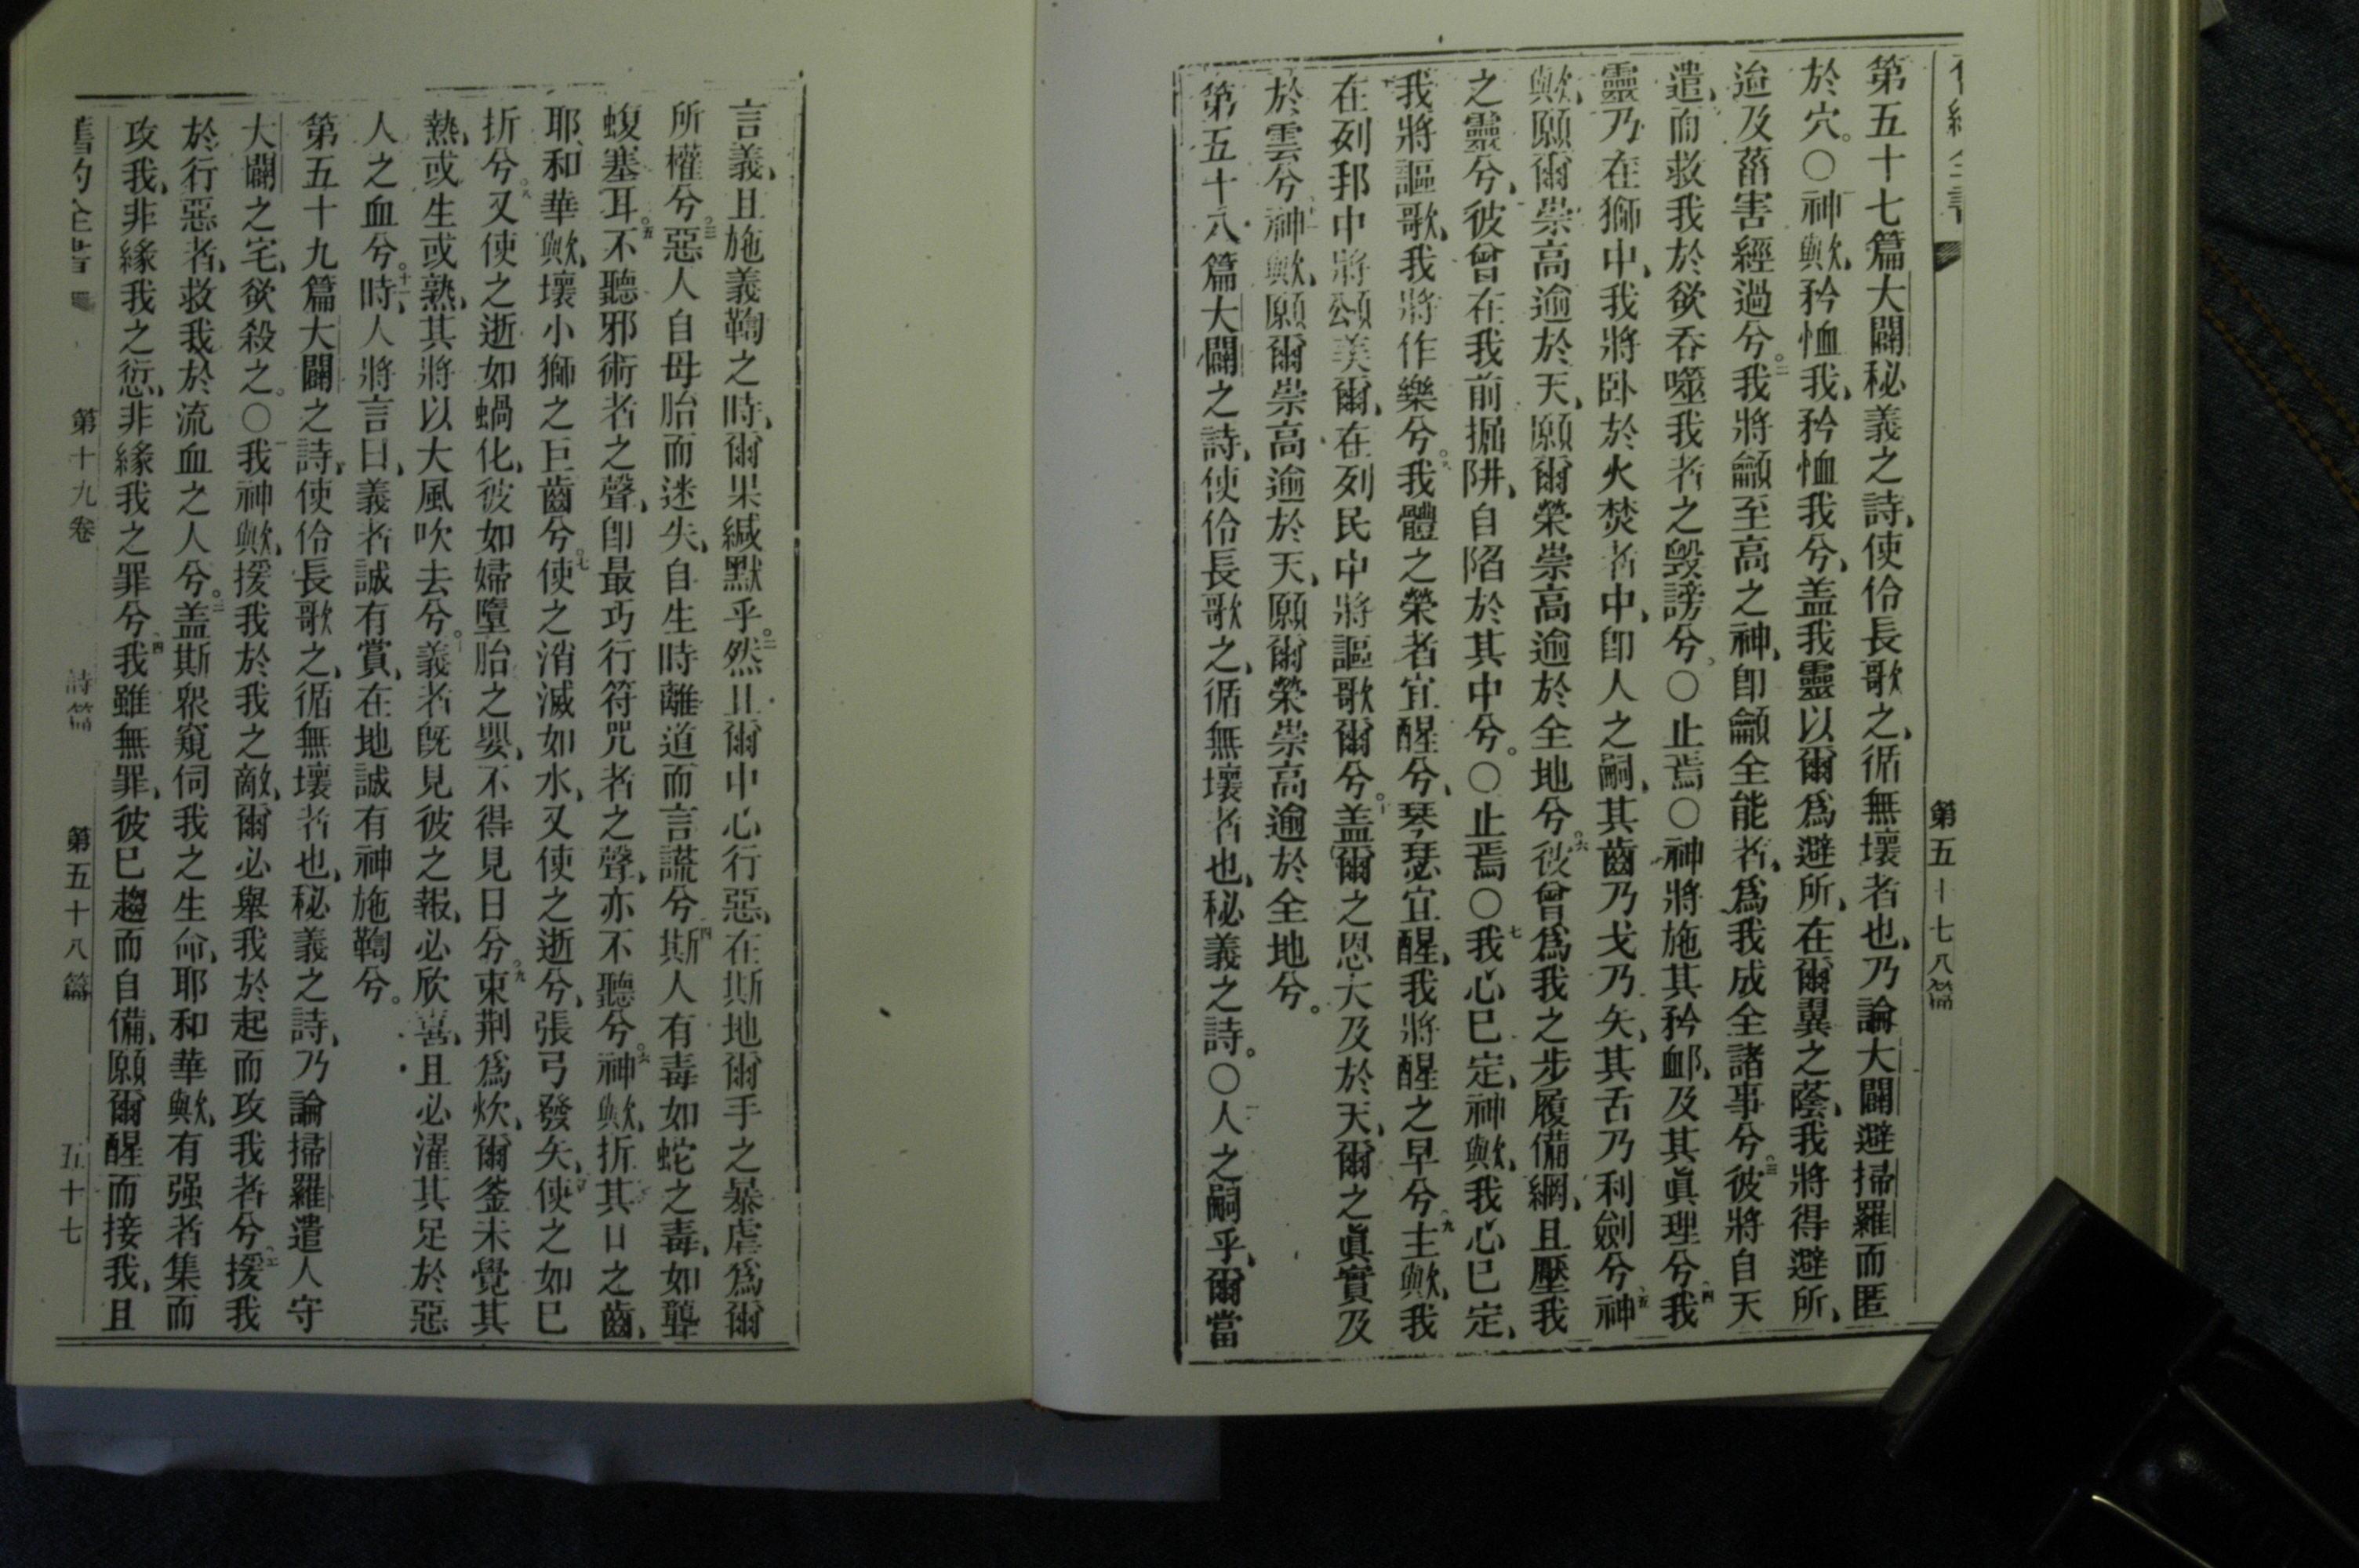 第五十七八篇
第五十七篇大闢秘義之詩、使伶長歌之、循無壞者也、乃論大闢避掃羅而匿
於穴。○神歟、矜恤我、矜恤我兮、盖我靈以爾爲避所、在爾翼之蔭、我將得避所、
迨及菑害經過兮。二我將龥至高之神、卽龥全能者、爲我成全諸事兮。三彼將自天
遣、而救我於欲吞噬我者之毀謗兮。○止焉○神將施其矜卹、及其眞理兮。四我
靈乃在獅中、我將卧於火焚者中、卽人之嗣、其齒乃戈乃矢、其舌乃利劍兮。五神
歟、願爾崇高逾於天、願爾榮崇高逾於全地兮。六彼曾爲我之步履備網、且壓我
之靈兮、彼曾在我前掘阱、自陷於其中兮。○止焉○七我心已定、神歟、我心已定、
我將謳歌、我將作樂兮。八我體之榮者宜醒兮、琴瑟宜醒、我將醒之早兮。九主歟、我
在列邦中將頌美爾、在列民中將謳歌爾兮。十盖爾之恩大及於天、爾之眞實及
於雲兮。十一神歟、願爾崇高逾於天、願爾榮崇高逾於全地兮。
第五十八篇大闢之詩、使伶長歌之、循無壞者也、秘義之詩。○一人之嗣乎、爾當
言義、且施義鞫之時、爾果緘默乎。二然且爾中心行惡、在斯地爾手之暴虐爲爾
所權兮。三惡人自母胎而迷失、自生時離道而言謊兮。四斯人有毒如蛇之毒、如聾
蝮塞耳。五不聽邪術者之聲、卽最巧行符咒者之聲、亦不聽兮。六神歟、折其口之齒、
耶和華歟、壞小獅之巨齒兮。七使之消滅如水、又使之逝兮、張弓發矢、使之如已
折兮。八又使之逝如蝸化、彼如婦墮胎之嬰、不得見日兮。九束荆爲炊、爾釜未覺其
熱、或生或熟、其將以大風吹去兮。十義者旣見彼之報、必欣喜、且必濯其足於惡
人之血兮。十一時、人將言曰、義者誠有賞、在地誠有神施鞫兮。
第五十九篇大闢之詩、使伶長歌之、循無壞者也、秘義之詩、乃論掃羅遣人守
大闢之宅、欲殺之。○一我神歟、援我於我之敵、爾必舉我於起而攻我者兮。二援我
於行惡者、救我於流血之人兮。三盖斯衆窺伺我之生命、耶和華歟、有强者集而
攻我、非緣我之愆、非緣我之罪兮。四我雖無罪、彼已趨而自備、願爾醒而接我、且
舊約全書 第十九卷 詩篇 第五十八篇 五十七